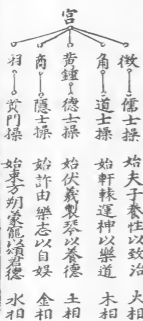 宮
徵 儒士操 始夫子養性以致治 火相
角 道士操 始軒轅運神以樂道 木相
黃鍾 德士操 始伏羲製琴以養德 土相
商 隱士操 始許由樂志以自娛 金相
羽 黃門操 始東方朔蒙寵以頌君德 水相